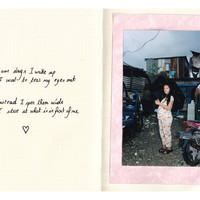 ome days I wake up
I want to tear my eyes out
nstead I open them wide
I stare at what is in front of me